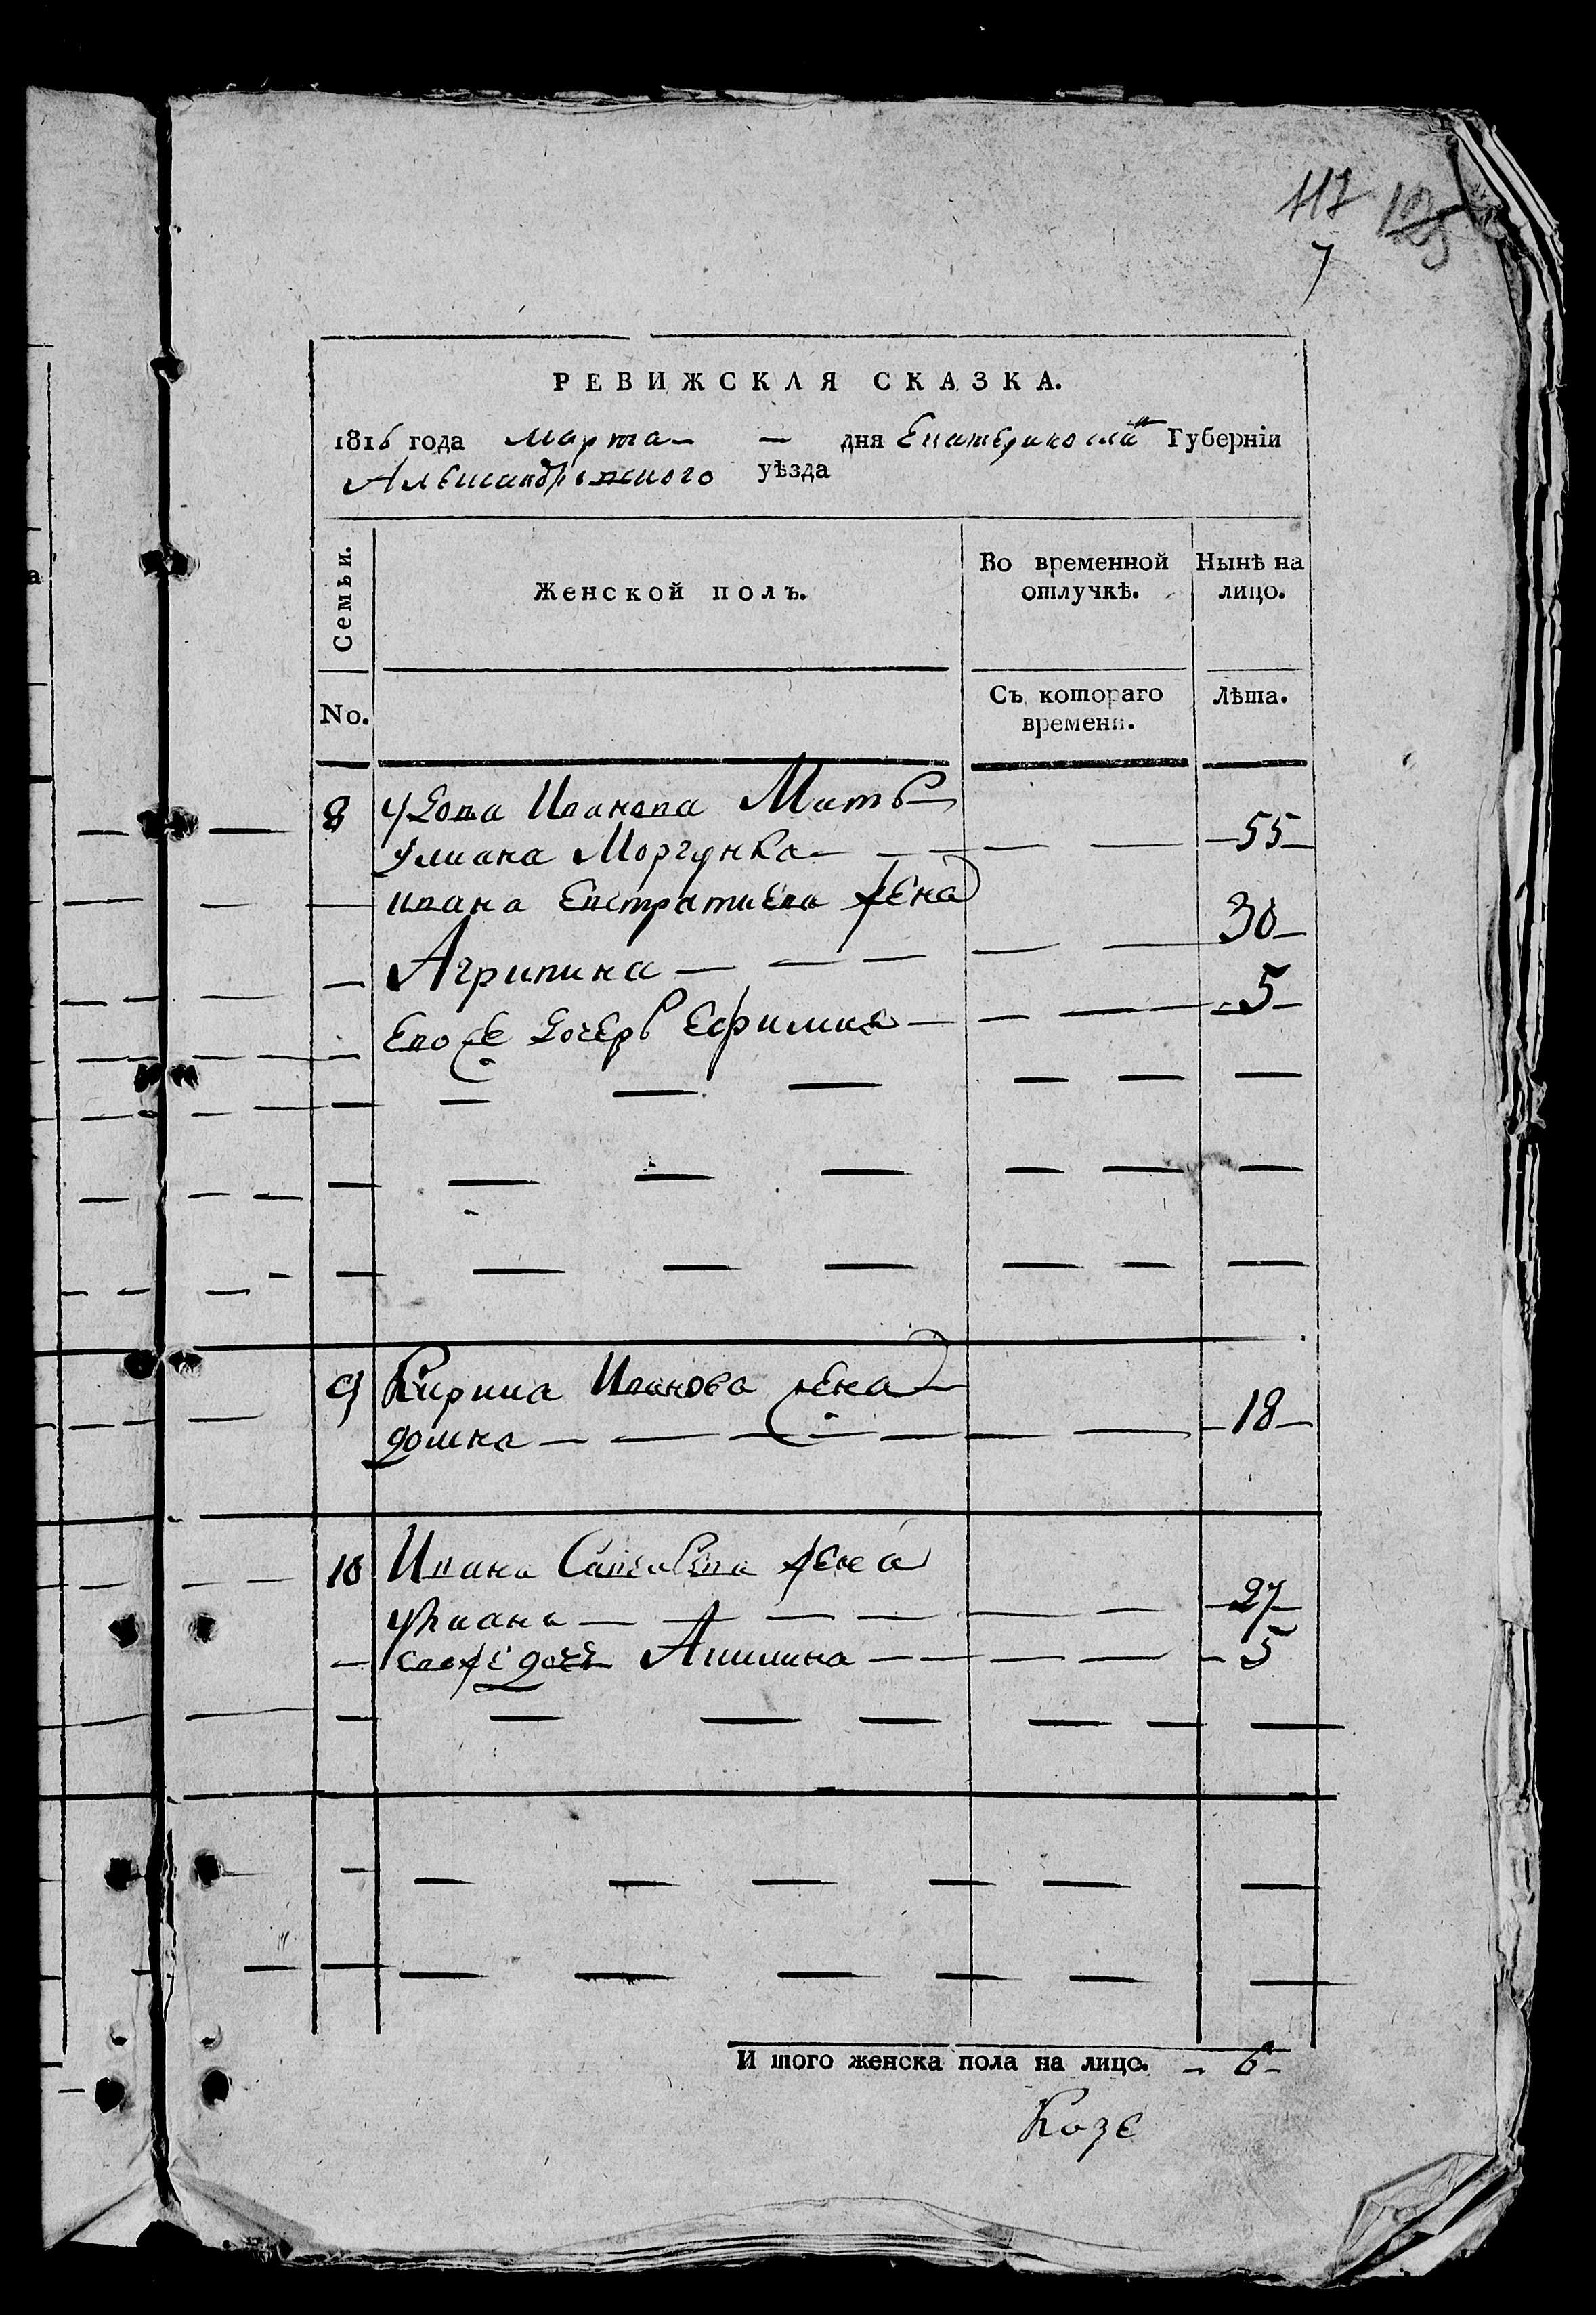 117
7
РЕВИЖСКАЯ СКАЗКА.
1816 года марта — дня Екатеринослав Губерніи
Александрійского уѣзда
Семьи. Женской полъ. Во временной отлучкѣ. Нынѣ на лицо.
No. Съ котораго времени. Лѣта.
8 Удова Иванова Мать
Улиана Моргунка — 55
Ивана Евстратиева жена
Агрипина — 30
Евоже дочерь Ефимия — 5
9 Кирила Иванова жена
Домна — 18
10 Ивана Савельева жена
Улиана — 27
Евоже дочь Акилина — 5
И того женска пола на лицо. 6
Козе